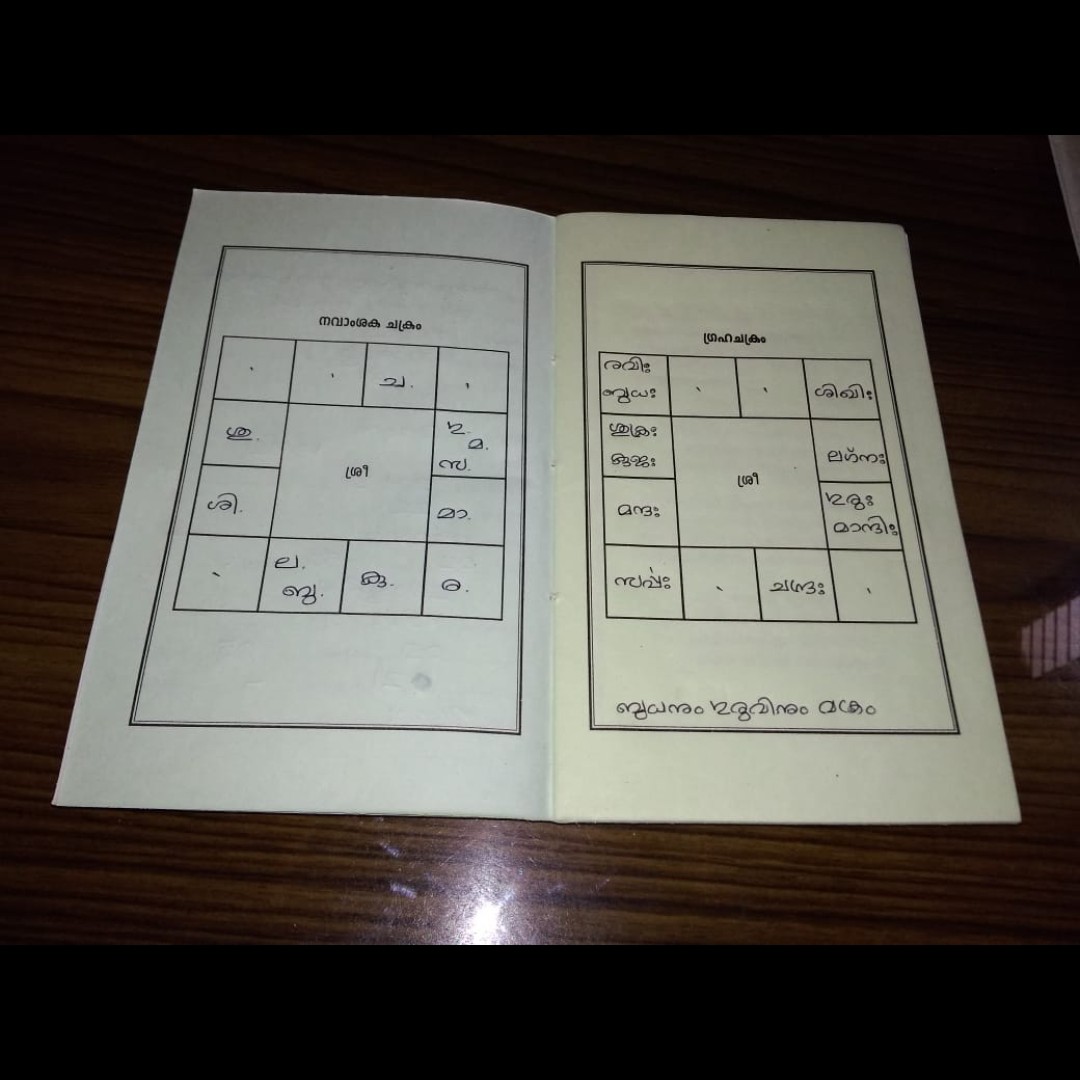 നവാംശക ചക്രം
ച.
ശു.
ഗു.
മ.
സ.
ശ്രീ
ശി.
മാ.
ല.
ബു.
കു.
ര.
ഗ്രഹചക്രം
രവിഃ
ബുധഃ
ശിഖിഃ
ശുക്രഃ
കുജഃ
ലഗ്നഃ
ശ്രീ
മന്ദഃ
ഗുരുഃ
മാന്ദിഃ
സർപ്പഃ
ചന്ദ്രഃ
ബുധനും ഗുരുവിനും വക്രം